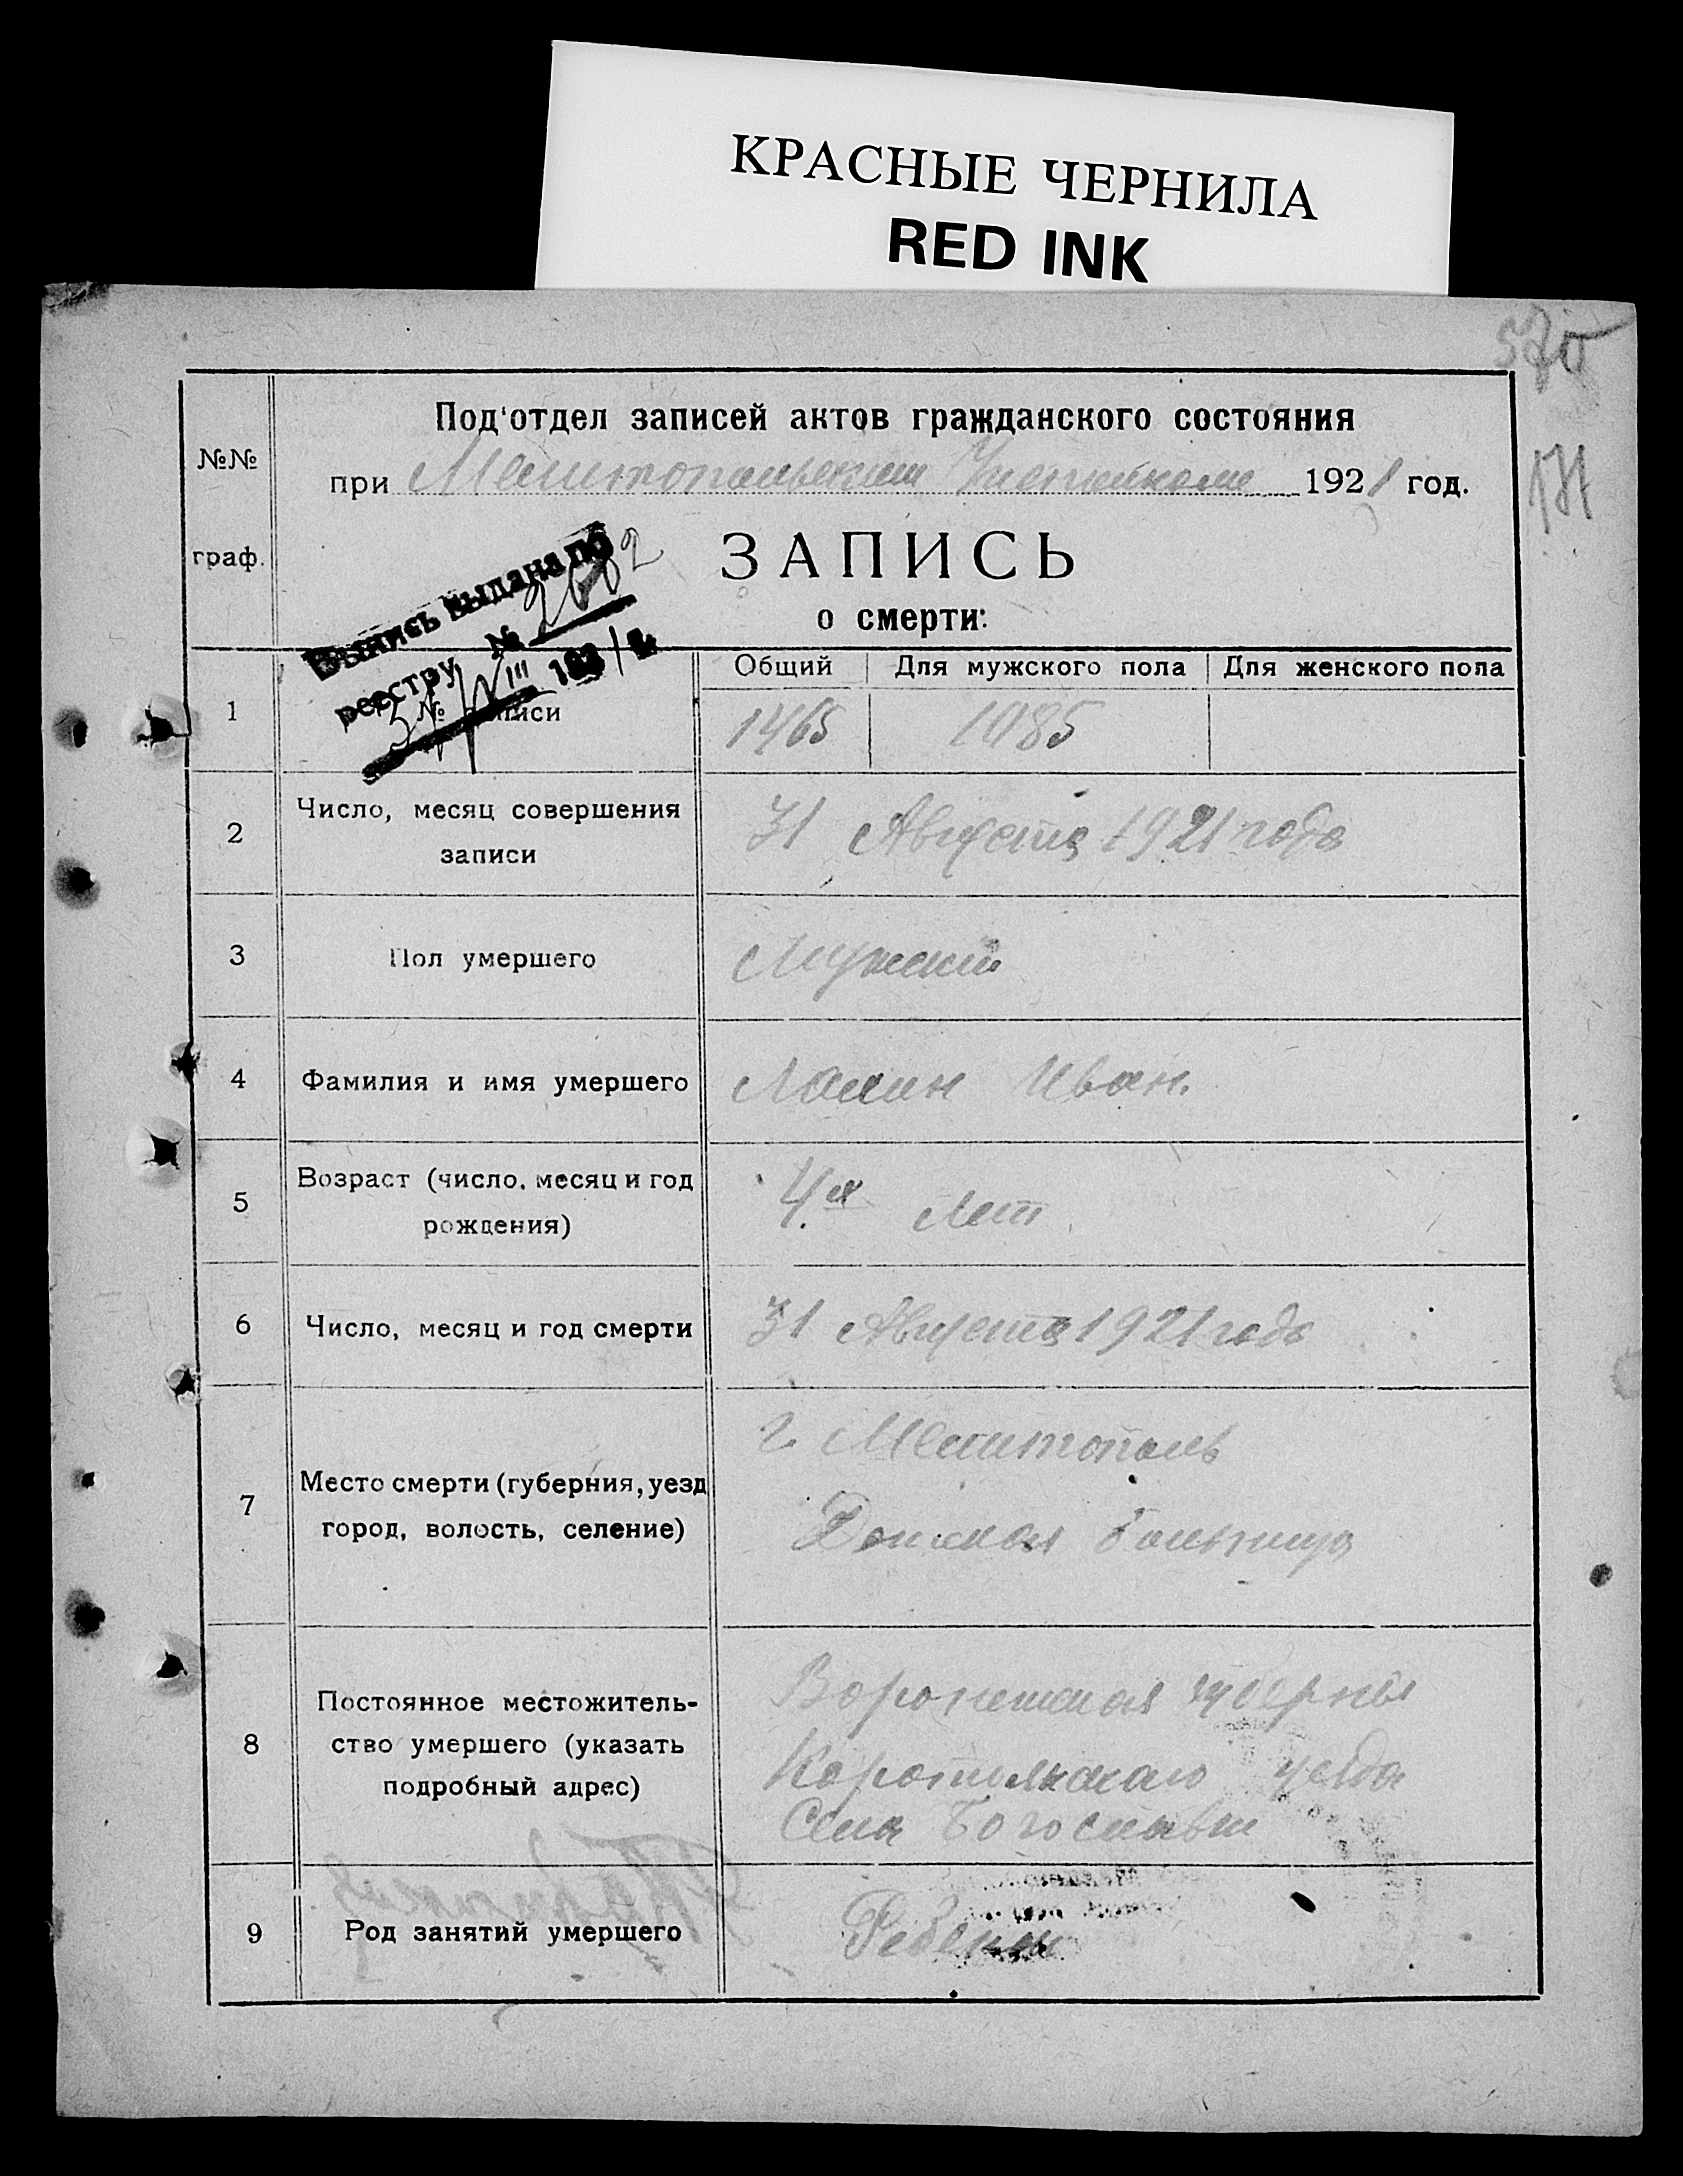 КРАСНЫЕ ЧЕРНИЛА
RED INK
Под'отдел записей актов гражданского состояния
№№
при Мелитопольском 1921 год.
граф.
ЗАПИСЬ
о смерти:
Выпись выдана по
реестру №
Общий Для мужского пола Для женского пола
1 № записи 1465 1085
2 Число, месяц совершения
записи
31 Августа 1921 года
3 Пол умершего Мужской
4 Фамилия и имя умершего Иван.
5 Возраст (число, месяц и год
рождения)
4х лет
6 Число, месяц и год смерти 31 Августа 1921 года
7 Место смерти (губерния, уезд
город, волость, селение)
г. Мелитополь
больница
8 Постоянное местожитель-
ство умершего (указать
подробный адрес)
Воронежская губерния
уезда
Села
9 Род занятий умершего Ребенок